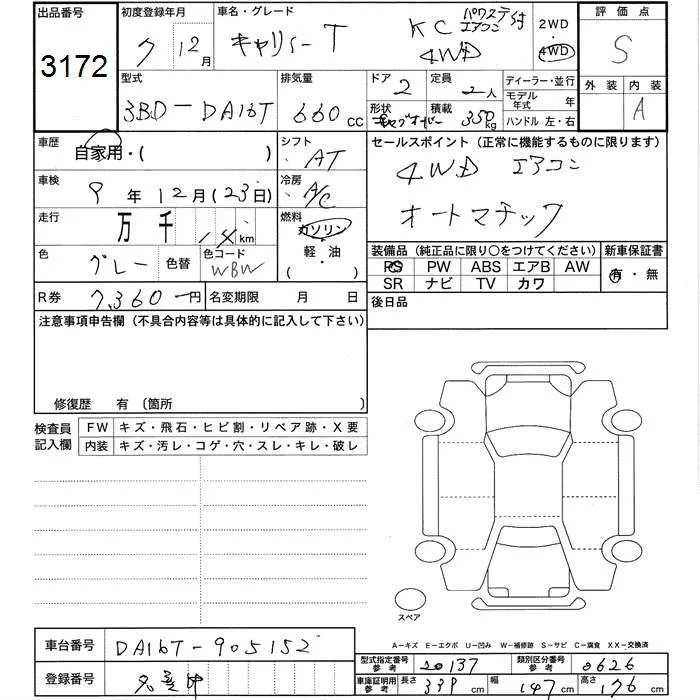 出品番号 3172
初度登録年月 7 12月
車名・グレード キャリー T KC パワステ付 エアコン 4WD
2WD・4WD
評価点 S
外装 内装 A
型式 3BD-DA16T
排気量 660 cc
ドア 2
定員 2人
形状
積載 350kg
ディーラー・並行
モデル年式 年
ハンドル 左・右
車歴 自家用・( )
シフト AT
セールスポイント (正常に機能するものに限ります)
4WD エアコン
オートマチック
車検 9年12月(23日)
冷房 A/C
走行 万 千 14 km
燃料 ガソリン 軽・油 ( )
色 グレー 色替
色コード WBW
装備品 (純正品に限り○をつけてください)
PS PW ABS エアB AW
SR ナビ TV カワ
新車保証書 有・無
R券 7,360円
名変期限 月 日
後日品
注意事項申告欄 (不具合内容等は具体的に記入して下さい)
修復歴 有 〔箇所 〕
検査員記入欄
FW キズ・飛石・ヒビ割・リペア跡・X要
内装 キズ・汚レ・コゲ・穴・スレ・キレ・破レ
スペア
A-キズ E-エクボ U-凹み W-補修跡 S-サビ C-腐食 XX-交換済
車台番号 DA16T-905152
型式指定番号 参考 20137
類別区分番号 参考 0626
登録番号
車庫証明用 参考 長さ 339 cm 幅 147 cm 高さ 176 cm